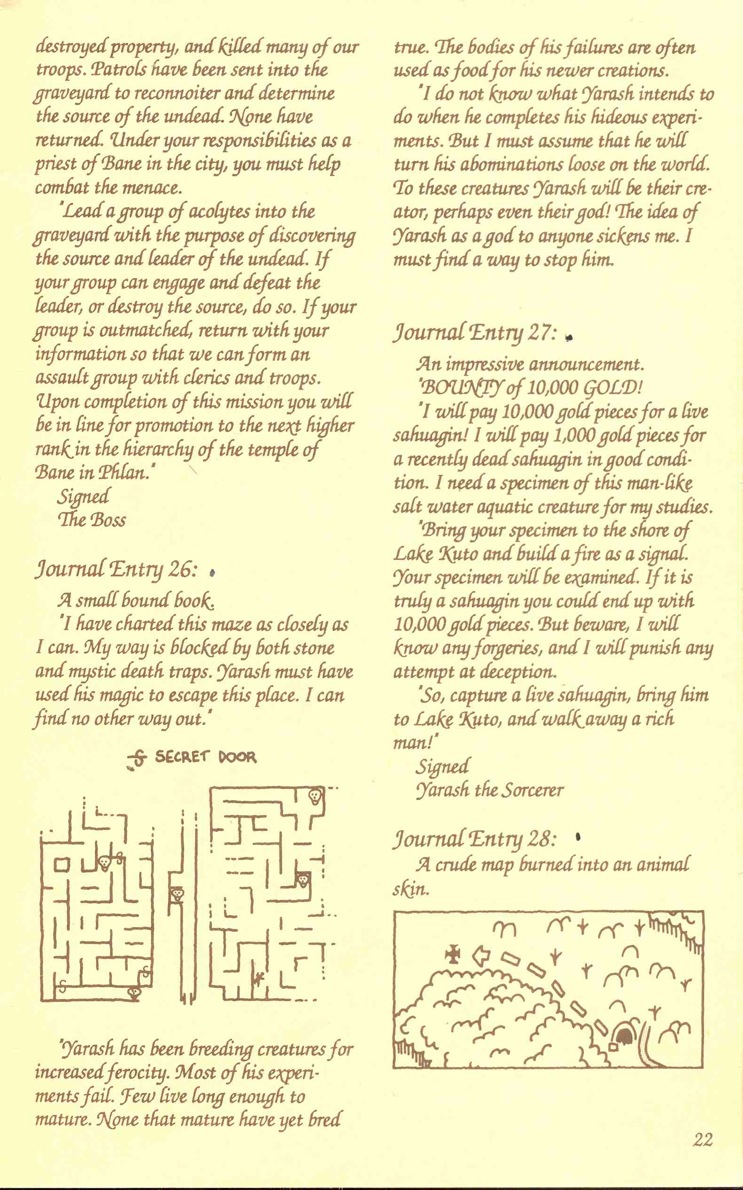 destroyed property, and killed many of our
troops. Patrols have been sent into the
graveyard to reconnoiter and determine
the source of the undead. None have
returned. Under your responsibilities as a
priest of Bane in the city, you must help
combat the menace.
"Lead a group of acolytes into the
graveyard with the purpose of discovering
the source and leader of the undead. If
your group can engage and defeat the
leader, or destroy the source, do so. If your
group is outmatched, return with your
information so that we can form an
assault group with clerics and troops.
Upon completion of this mission you will
be in line for promotion to the next higher
rank in the hierarchy of the temple of
Bane in Phlan."
Signed
The Boss
Journal Entry 26:
A small bound book.
"I have charted this maze as closely as
I can. My way is blocked by both stone
and mystic death traps. Yarash must have
used his magic to escape this place. I can
find no other way out."
S SECRET DOOR
S
S
S
"Yarash has been breeding creatures for
increased ferocity. Most of his experi-
ments fail. Few live long enough to
mature. None that mature have yet bred
true. The bodies of his failures are often
used as food for his newer creations.
"I do not know what Yarash intends to
do when he completes his hideous experi-
ments. But I must assume that he will
turn his abominations loose on the world.
To these creatures Yarash will be their cre-
ator, perhaps even their god! The idea of
Yarash as a god to anyone sickens me. I
must find a way to stop him.
Journal Entry 27:
An impressive announcement.
"BOUNTY of 10,000 GOLD!
"I will pay 10,000 gold pieces for a live
sahuagin! I will pay 1,000 gold pieces for
a recently dead sahuagin in good condi-
tion. I need a specimen of this man-like
salt water aquatic creature for my studies.
"Bring your specimen to the shore of
Lake Kuto and build a fire as a signal.
Your specimen will be examined. If it is
truly a sahuagin you could end up with
10,000 gold pieces. But beware, I will
know any forgeries, and I will punish any
attempt at deception.
"So, capture a live sahuagin, bring him
to Lake Kuto, and walk away a rich
man!"
Signed
Yarash the Sorcerer
Journal Entry 28:
A crude map burned into an animal
skin.
22